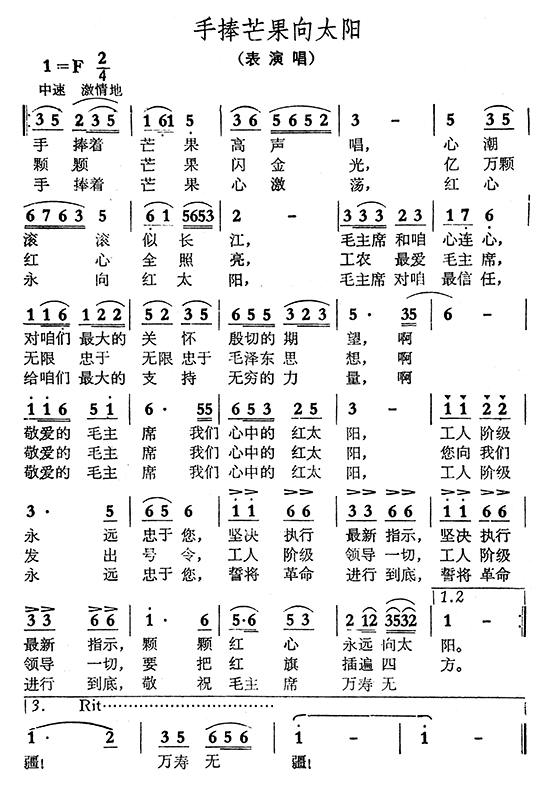 手捧芒果向太阳
(表演唱)
1=F 2/4
中速 激情地
35 235 161 5 36 5652 3 - 35
手 捧着 芒 果 高 声 唱， 心 潮
颗 颗 芒 果 闪 金 光， 亿 万颗
手 捧着 芒 果 心 激 荡， 红 心
6763 5 61 5653 2 - 333 23 17 6
滚 滚 似 长 江， 毛主席 和咱 心连 心，
红 心 全 照 亮， 工农 最爱 毛主 席，
永 向 红 太 阳， 毛主席 对咱 最信 任，
116 122 52 35 655 323 5· 35 6 -
对咱们 最大的 关 怀 殷切的 期 望， 啊
无限 忠于 无限 忠于 毛泽东 思 想， 啊
给咱们 最大的 支 持 无穷的 力 量， 啊
116 51 6· 55 653 25 3 - 11 22
敬爱的 毛主 席 我们 心中的 红太 阳， 工人 阶级
敬爱的 毛主 席 我们 心中的 红太 阳， 您向 我们
敬爱的 毛主 席 我们 心中的 红太 阳， 工人 阶级
3· 5 65 6 11 66 33 66 11 66
永 远 忠于 您， 坚决 执行 最新 指示， 坚决 执行
发 出 号 令， 工人 阶级 领导 一切， 工人 阶级
永 远 忠于 您， 誓将 革命 进行 到底， 誓将 革命
1.2
33 66 1· 6 5·6 53 212 3532 1 -
最新 指示， 颗 颗 红 心 永远 向太 阳。
领导 一切， 要 把 红 旗 插遍 四 方。
进行 到底， 敬 祝 毛主 席 万寿 无
3. Rit
1· 2 35 656 1 - 1 -
疆！ 万寿 无 疆！